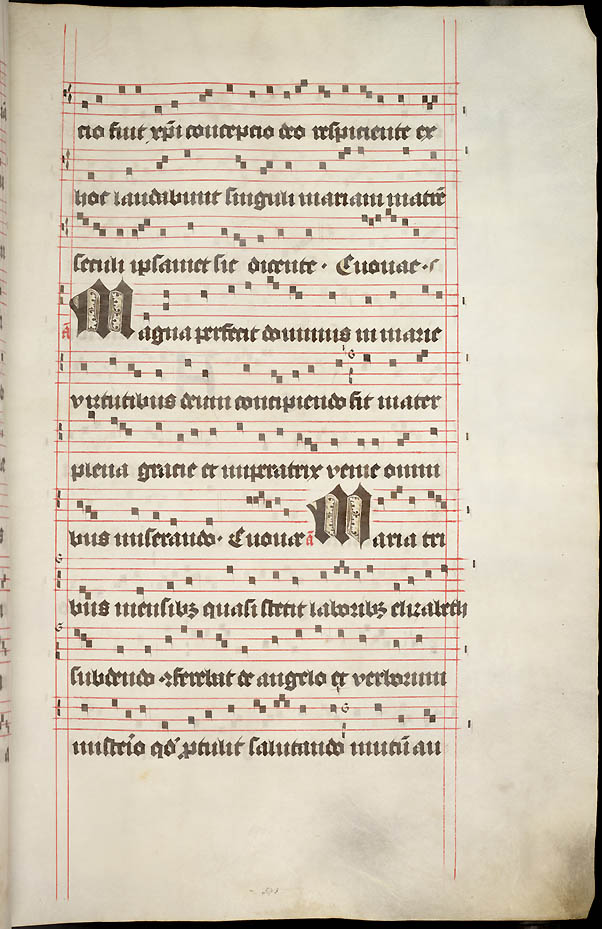 cio fuit xp̄i concepcio deo respiciente ex
hoc laudabunt singuli mariam matrē
seculi ipsamet sit dicente · Euouae ·
ā Magna perfecit dominus in marie
virtutibus deum concipiendo fit mater
plena gracie et imperatrix venie omni
bus miserando · Euouae ā Maria tri
bus mensibꝫ quasi stetit laboribꝫ elizabeth
subdendo ꝛferebat de angelo et verborum
misterio qd̄ ꝓtulit salutando mutū au